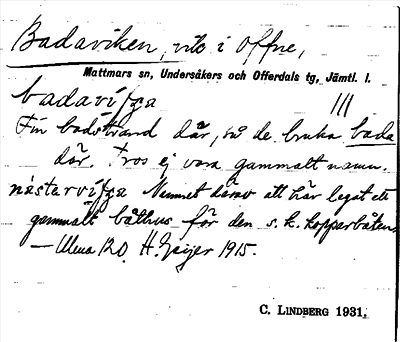 Badaviken, vik i Offne,
Mattmars sn, Undersåkers och Offerdals tg, Jämtl. l.
badaviʃga III
Fin badstrand där, så de bruka bada
där. Tros ej vara gammalt namn.
nástarviʃga Namnet därav att här legat ett
gammalt båthus för den s. k. kopparbåten.
— Ulma 120 H. Geijer 1915.
C. LINDBERG 1931.